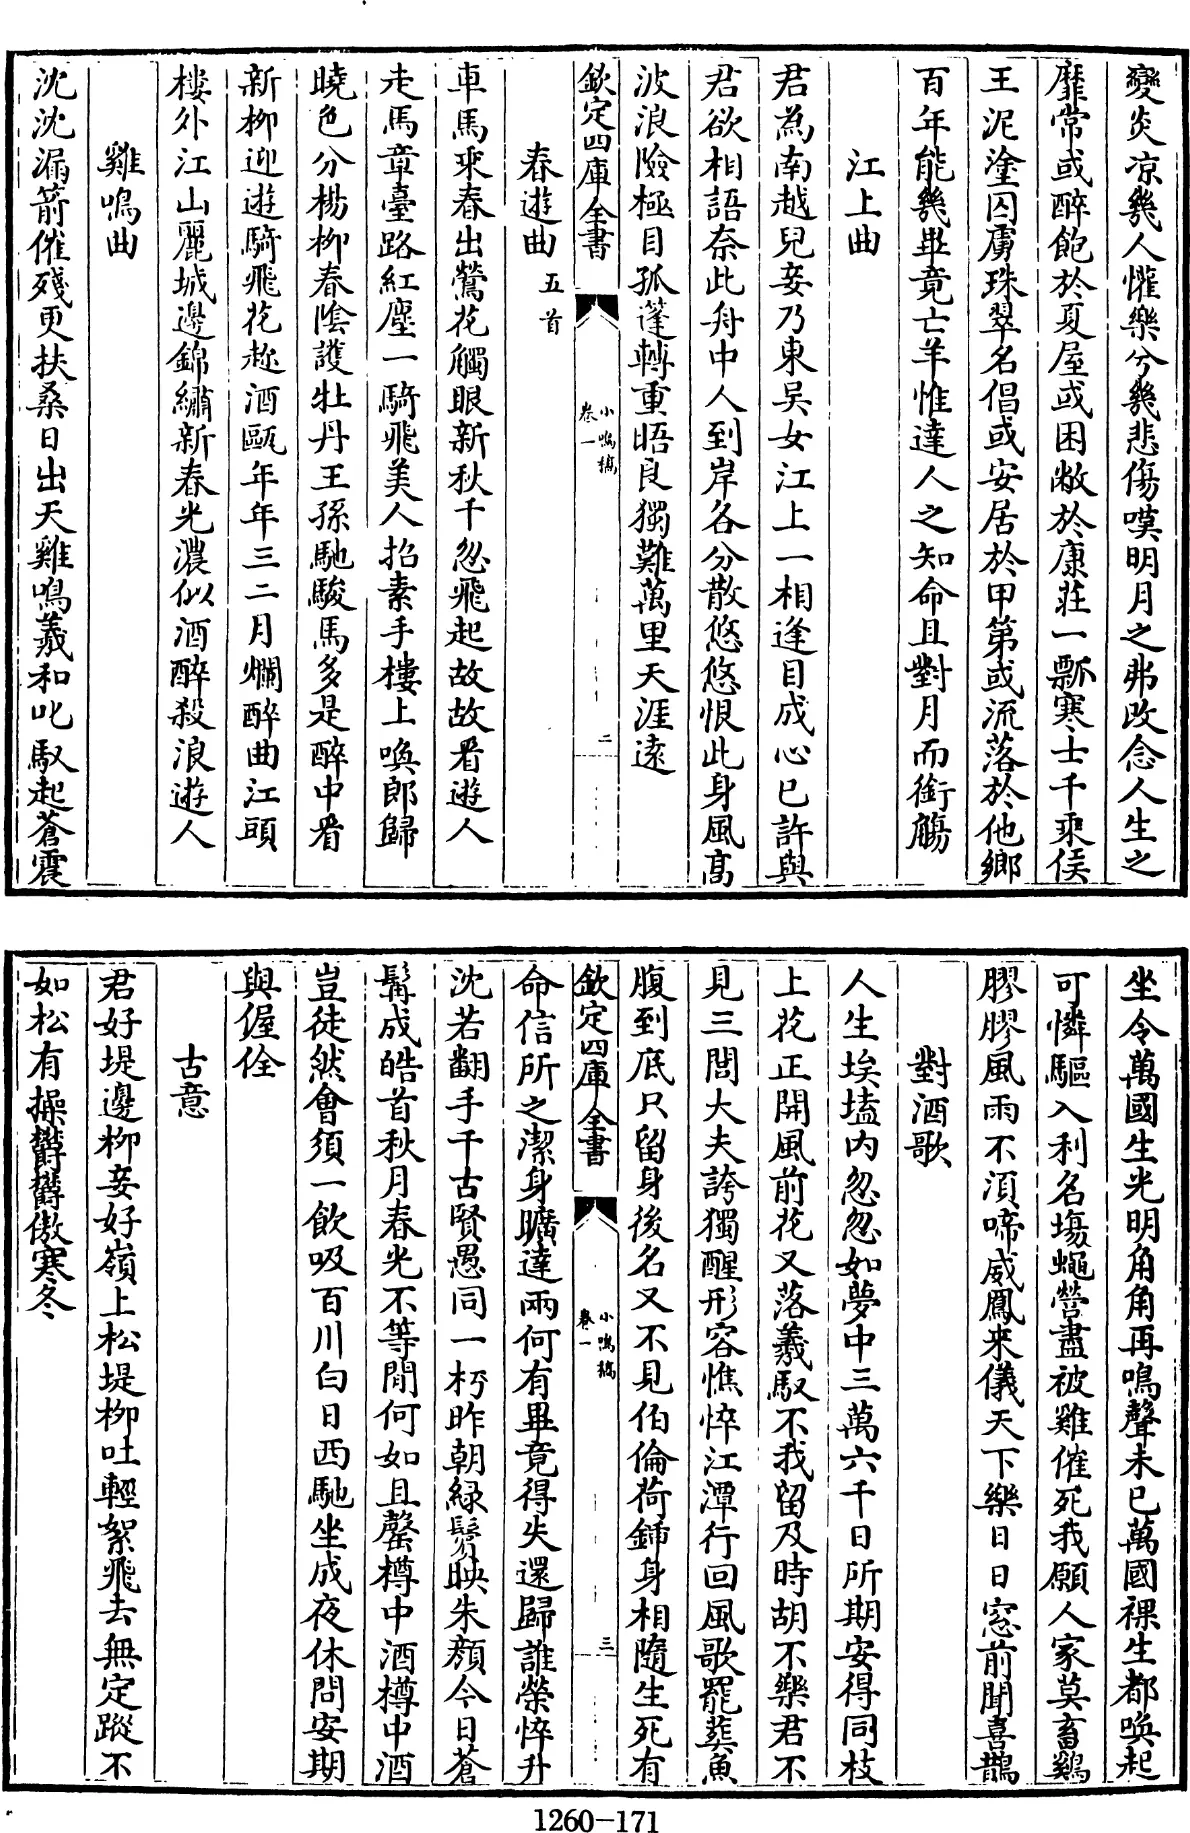 變炎凉幾人懽樂兮幾悲傷嘆明月之弗改念人生之
靡常或醉飽於夏屋或困敝於康莊一瓢寒士千乘侯
王泥塗囚虜珠翠名倡或安居於甲第或流落於他鄉
百年能幾畢竟亡羊惟達人之知命且對月而銜觴
江上曲
君為南越兒妾乃東吳女江上一相逢目成心已許與
君欲相語奈此舟中人到岸各分散悠悠恨此身風高
波浪險極目孤蓬轉重晤良獨難萬里天涯遠
欽定四庫全書
小鳴稿
卷一
二
春遊曲五首
車馬乘春出鶯花觸眼新秋千忽飛起故故看遊人
走馬章臺路紅塵一騎飛美人招素手樓上喚郎歸
曉色分楊柳春陰護牡丹王孫馳駿馬多是醉中看
新柳迎遊騎飛花趂酒甌年年三二月爛醉曲江頭
樓外江山麗城邊錦繡新春光濃似酒醉殺浪遊人
雞鳴曲
沈沈漏箭催殘更扶桑日出天雞鳴羲和叱馭起蒼震
坐令萬國生光明角角再鳴聲未已萬國裸生都喚起
可憐驅入利名場蠅營盡被雞催死我願人家莫畜鷄
膠膠風雨不湏啼威鳳來儀天下樂日日窓前聞喜鵲
對酒歌
人生埃𡏖内忽忽如夢中三萬六千日所期安得同枝
上花正開風前花又落羲馭不我留及時胡不樂君不
見三閭大夫誇獨醒形容憔悴江潭行回風歌罷葬魚
腹到底只留身後名又不見伯倫荷鍤身相隨生死有
欽定四庫全書
小鳴稿
卷一
三
命信所之潔身曠達兩何有畢竟得失還歸誰榮悴升
沈若翻手千古賢愚同一朽昨朝緑鬢映朱顔今日蒼
髯成皓首秋月春光不等閒何如且罄樽中酒樽中酒
豈徒然會須一飲吸百川白日西馳坐成夜休問安期
與偓佺
古意
君好堤邊柳妾好嶺上松堤柳吐輕絮飛去無定蹤不
如松有操欝欝傲寒冬
1260-171